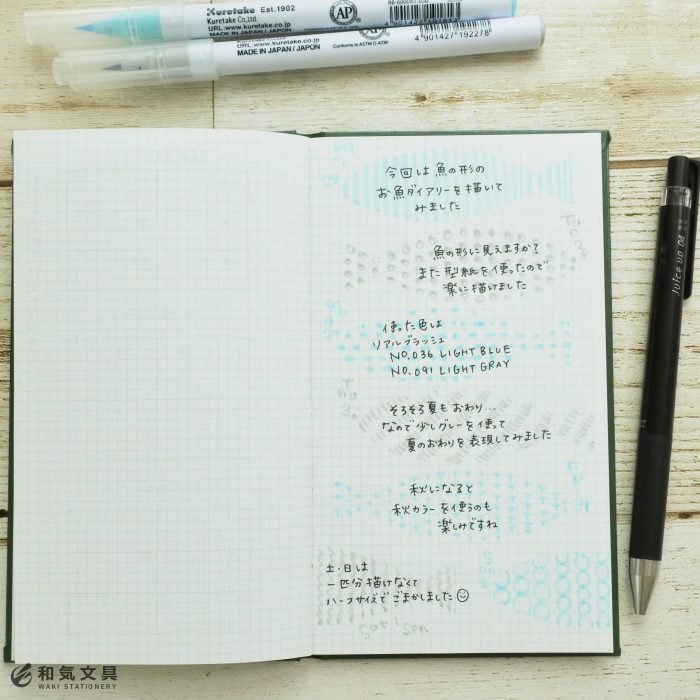 Kuretake Est.1902
Kuretake Co.,Ltd.
URL:www.kuretake.co.jp
MADE IN JAPAN / JAPON
AP
RB-6000AT-036
URL:www.kuretake.co.jp
MADE IN JAPAN / JAPON
AP
Conforms to ASTM D 4236
4 901427 192278
今回は魚の形の
お魚ダイアリーを描いて
みました
魚の形に見えますか?
また型紙を使ったので
楽に描けました
使った色は
リアルブラッシュ
NO.036 LIGHT BLUE
NO.091 LIGHT GRAY
そろそろ夏もおわり...
なので少しグレーを使って
夏のおわりを表現してみました
秋になると
秋カラーを使うのも
楽しみですね
土・日は
一匹分描けなくて
ハーフサイズでごまかしました
Juice up 04
和気文具
WAKI STATIONERY